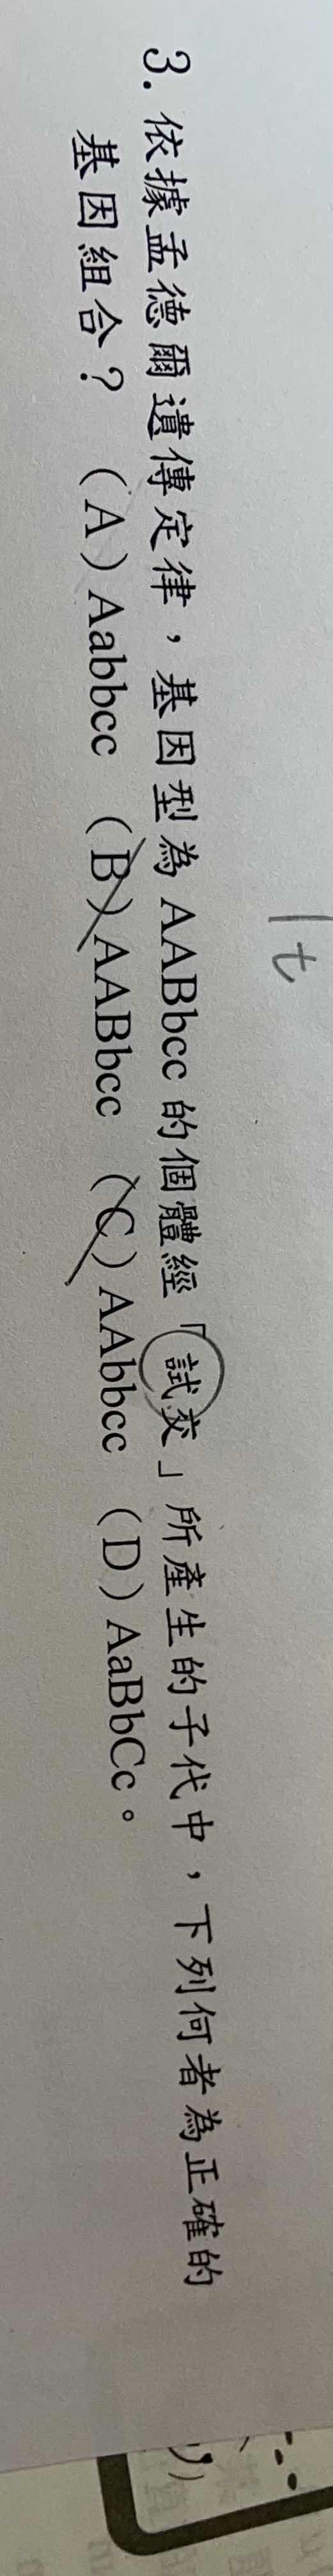 3. 依據孟德爾遺傳定律，基因型為 AABbcc 的個體經「試交」所產生的子代中，下列何者為正確的
基因組合？ （A）Aabbcc （B）AABbcc （C）AAbbcc （D）AaBbCc。